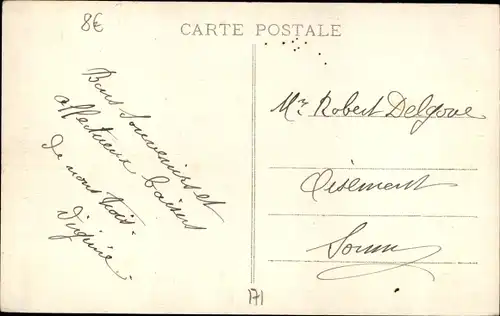 8€
CARTE POSTALE
Bons Souvenirs et
affectueux baisers
de nous trois
Virginie.
Mr Robert Delgove
Oisemont
Somme
171